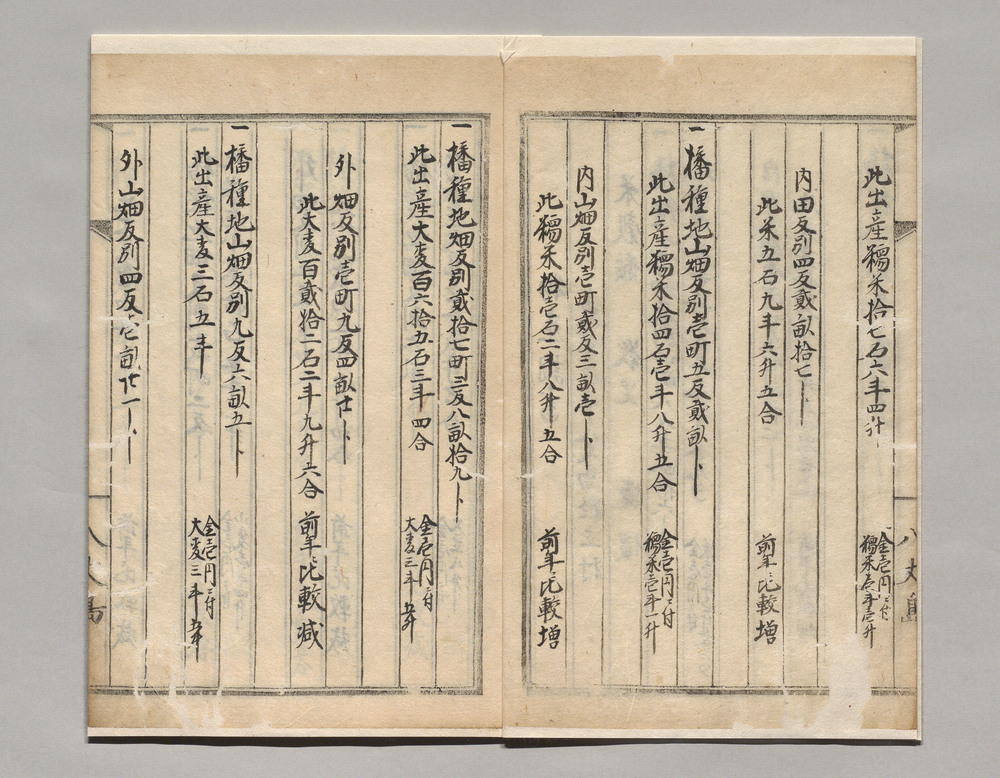 此出産糯米拾七石六斗四升
金壱円ニ付
糯米壱斗壱升
内田反別四反貳畝拾七卜
此米五石九斗六升五合
前年ニ比較増
一播種地山畑反別壱町五反貳畝卜
此出産糯米拾四石壱斗八升五合
金壱円ニ付
糯米壱斗一升
内山畑反別壱町貳反三畝壱卜
此糯米拾壱石二斗八升五合
前年ニ比較増
八丈島
一播種地畑反別貳拾七町三反八畝拾九卜
此出産大麦百六拾五石三斗四合
金壱円ニ付
大麦三斗五升
外畑反別壱町九反四畝廿卜
此大麦百貳拾二石二斗九升六合
前年ニ比較減
一播種地山畑反別九反六畝五卜
此出産大麦三石五斗
金壱円ニ付
大麦三斗五升
外山畑反別四反壱畝廿一卜
八丈島